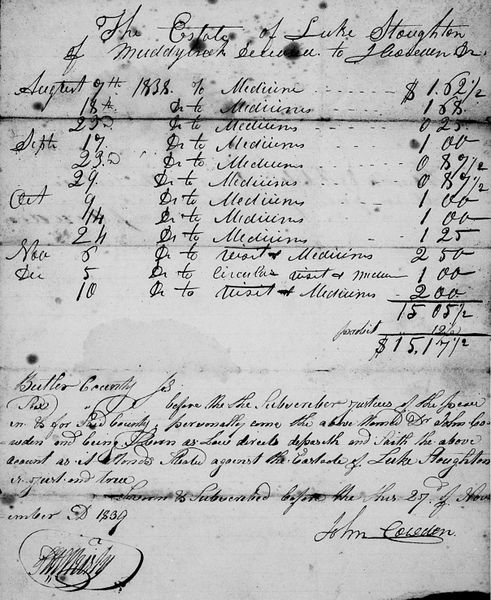 The Estate of Luke Stoughton
of Muddycreek Deceased to J Cowden Dr.
August 9th 1838. To Medicine $1.62 1/2
18th Dr to Medicines 1 68
23d Dr to Medicines 0 25
Sept 17 Dr to Medicines 1 00
23d Dr to Medicines 0 87 1/2
29 Dr to Medicines 0 87 1/2
Oct 9 Dr to Medicines 1 00
14 Dr to Medicines 1 00
24 Dr to Medicines 1 25
Nov 6 Dr to visit & Medicines 2 50
Dec 5 Dr to visit & 1 00
10 Dr to visit & Medicines 2 00
15 05 1/2
12 1/2
$15,17 1/2
Butler County
before the the Subscriber Justice of the peace
in & for said County personally came the above Named Dr John Cow
den and being sworn as Law directs deposeth and saith the above
account as it stands stated against the Estate of Luke Stoughton
is just and true
Sworn & Subscribed before me this 27th of Nov
ember AD 1839
John Cowden